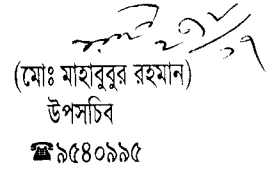 (মোঃ মাহাবুবুর রহমান)
উপসচিব
☎৯৫৪০৯৯৫